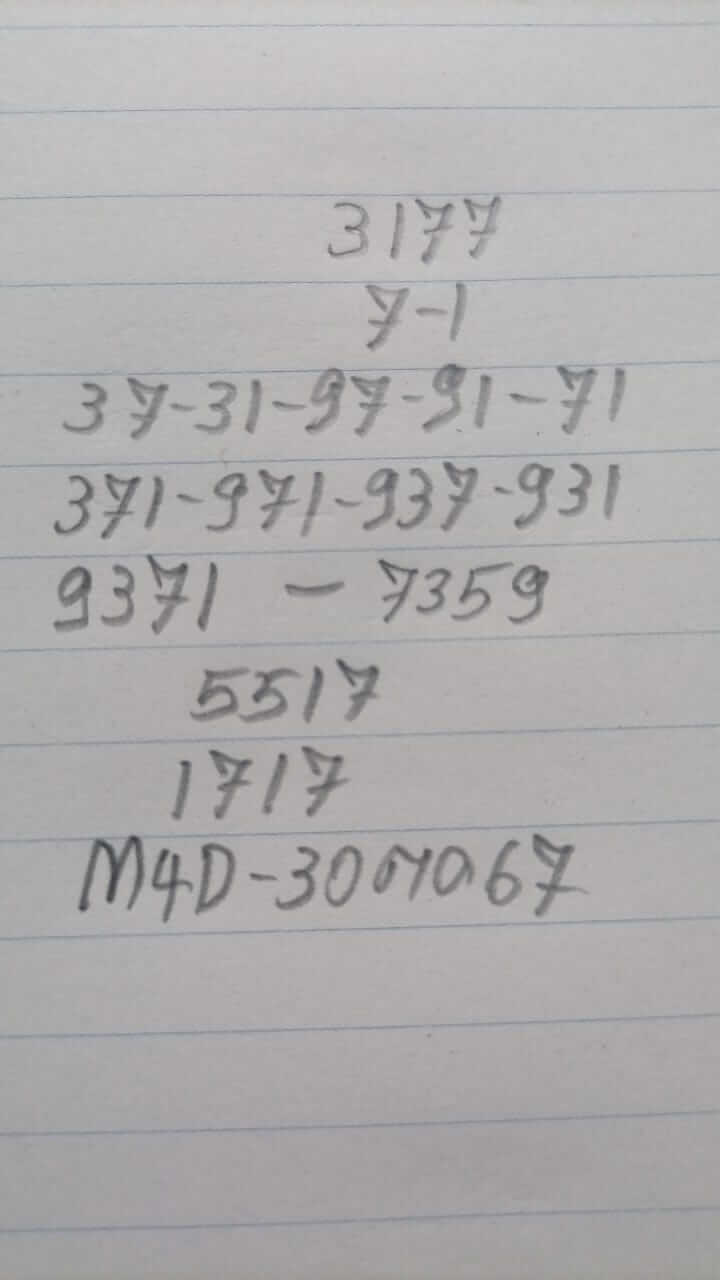 3177
7-1
37-31-97-91-71
371-971-937-931
9371 - 7359
5517
1717
M4D-30ตาค67